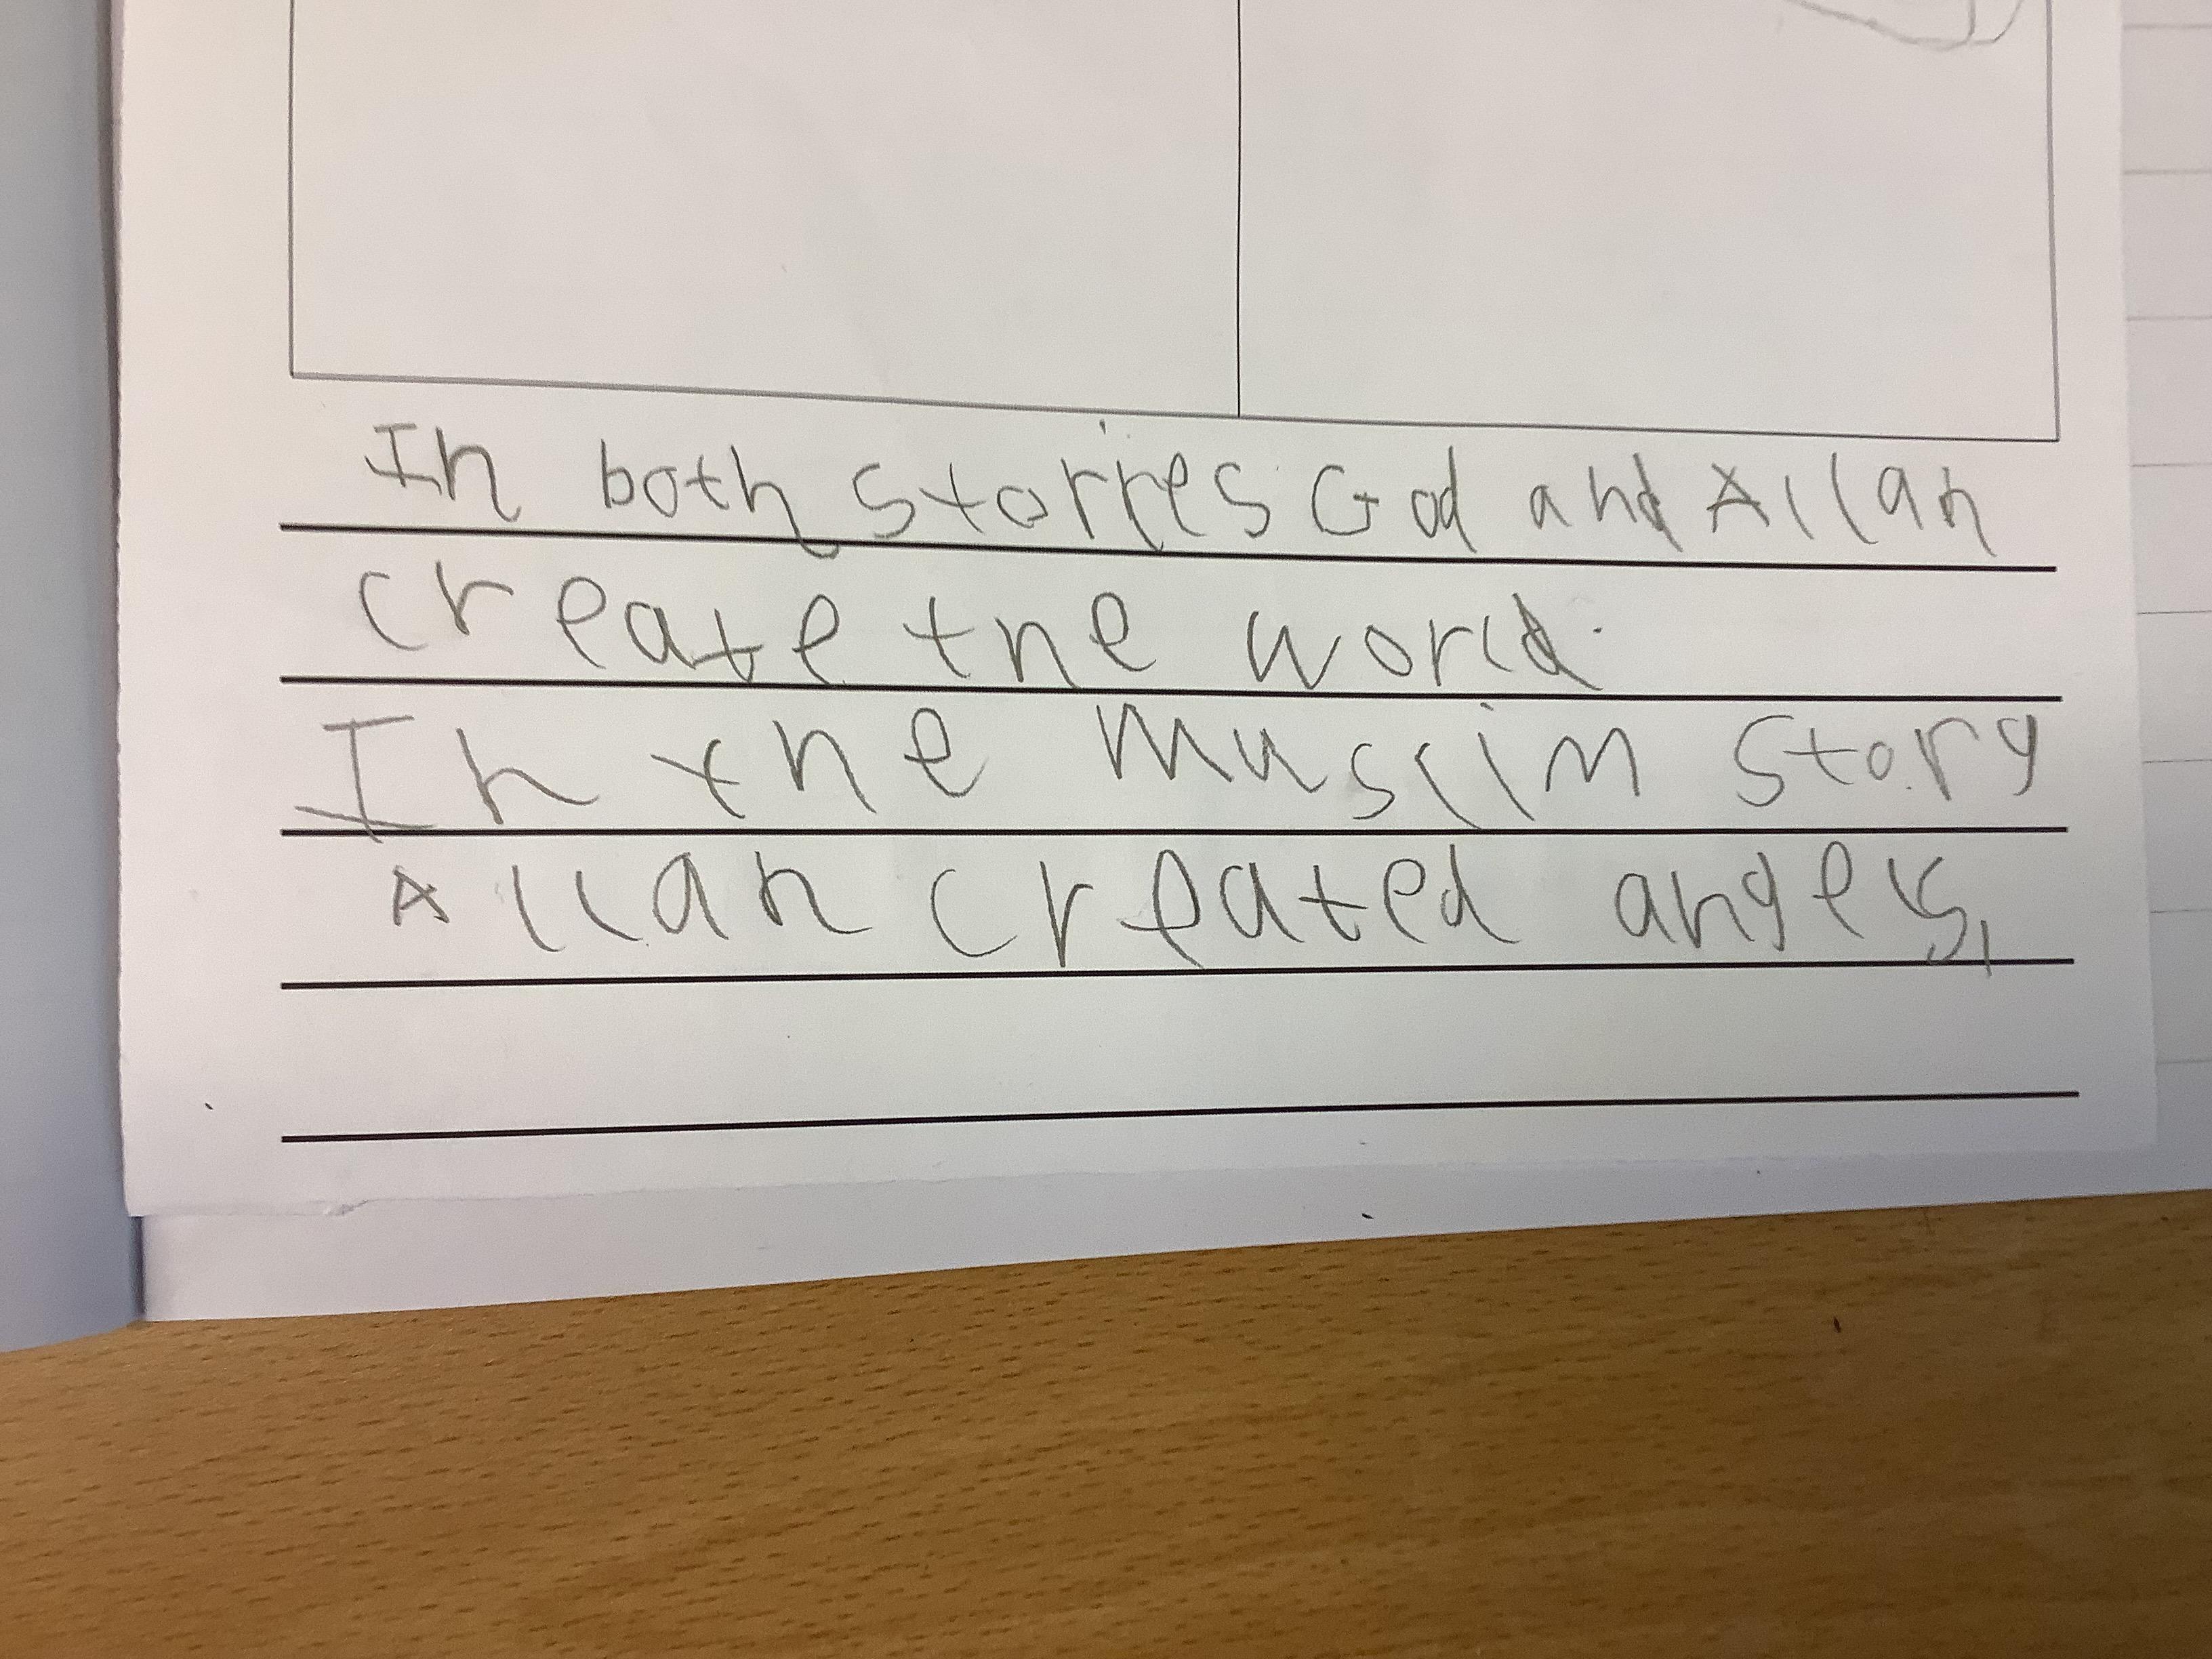 In both storries God and Allah
create the world.
In the muslim story
Allah created angels,